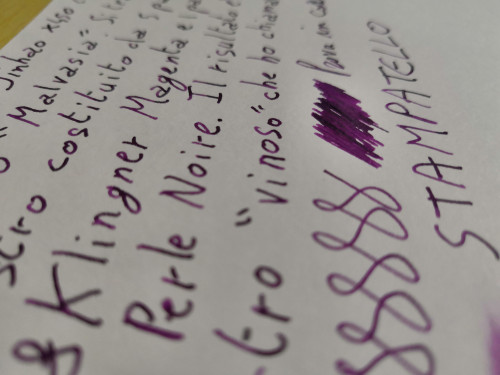 Jinhao X450
"Malvasia"
costituito da 5 p
& Klingner Magenta e
Perle Noire. Il risultato è
tro "vinoso" che ho chiama
Prova in
STAMPATELLO